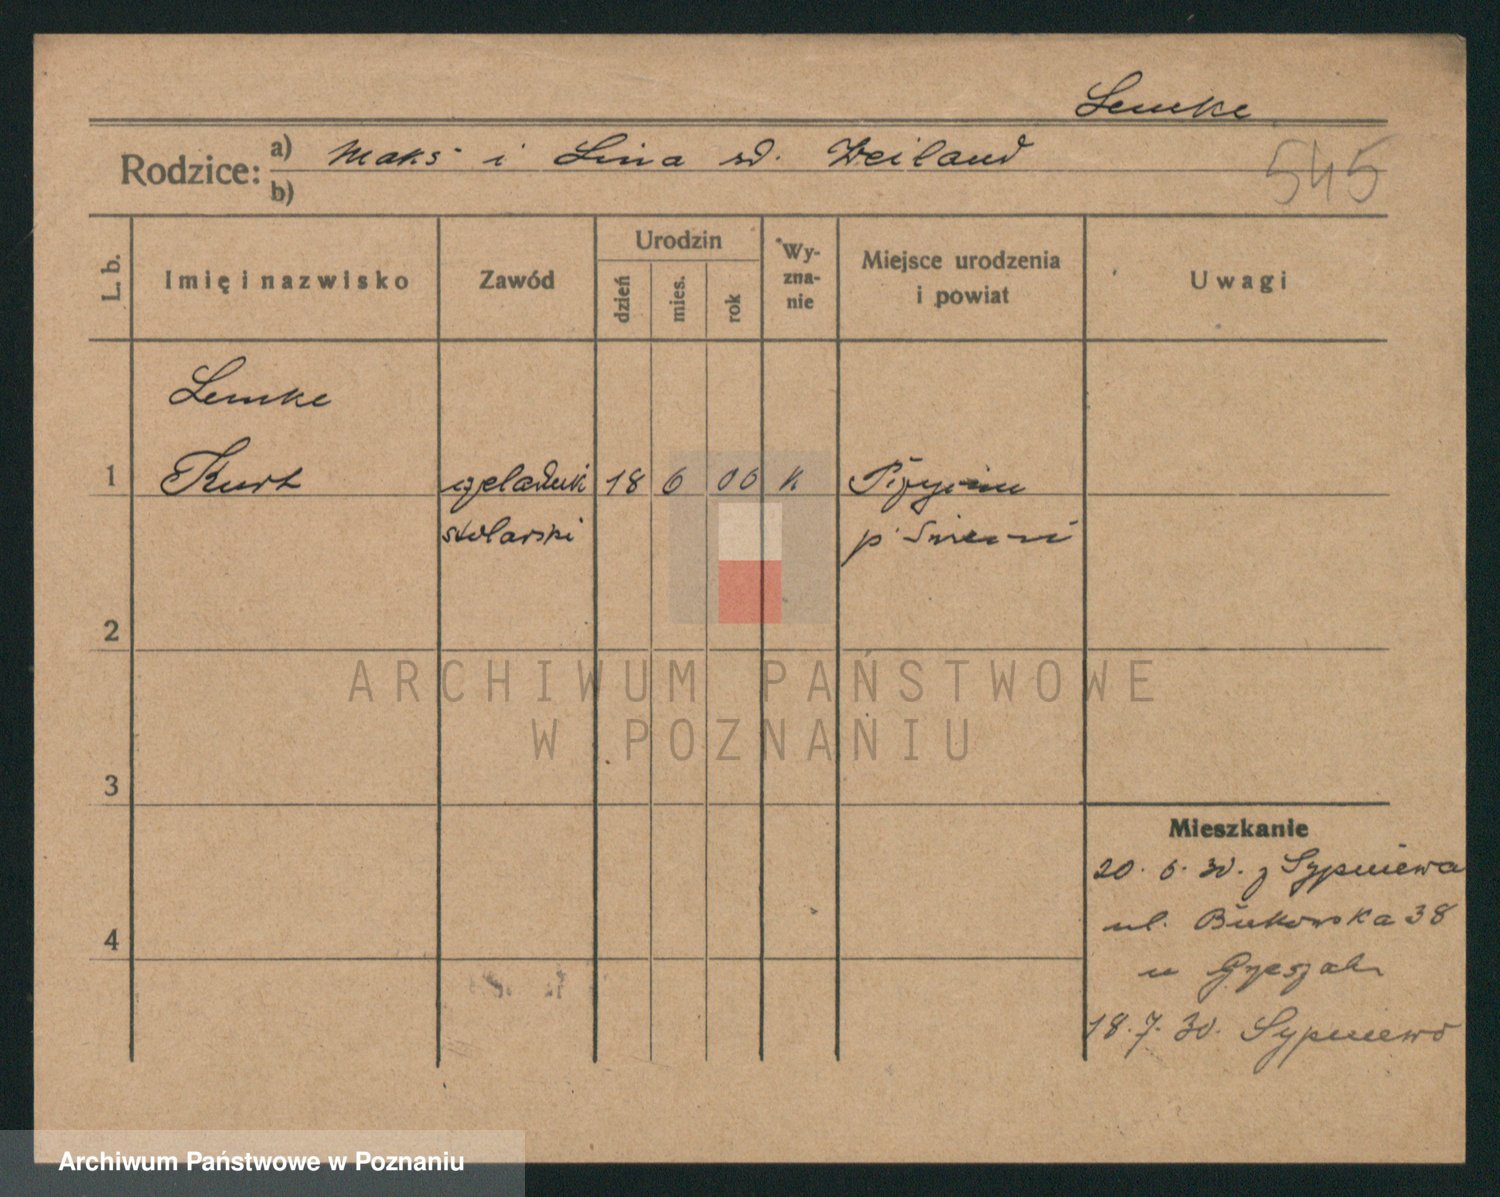 Lemke
Rodzice: a) Maks i Lina zd. Weiland
b)
545
L. b.
Imię i nazwisko
Zawód
Urodzin
dzień
mies.
rok
Wy-
zna-
nie
Miejsce urodzenia
i powiat
Uwagi
Lemke
1 Kurt czeladnik 18 6 06 k
stolarski
p
2
ARCHIWUM PAŃSTWOWE
W POZNANIU
3
Mieszkanie
20. 6. 30. z Sypniewa
ul. Bukowska 38
4
u
18. 7. 30. Sypniewo
Archiwum Państwowe w Poznaniu